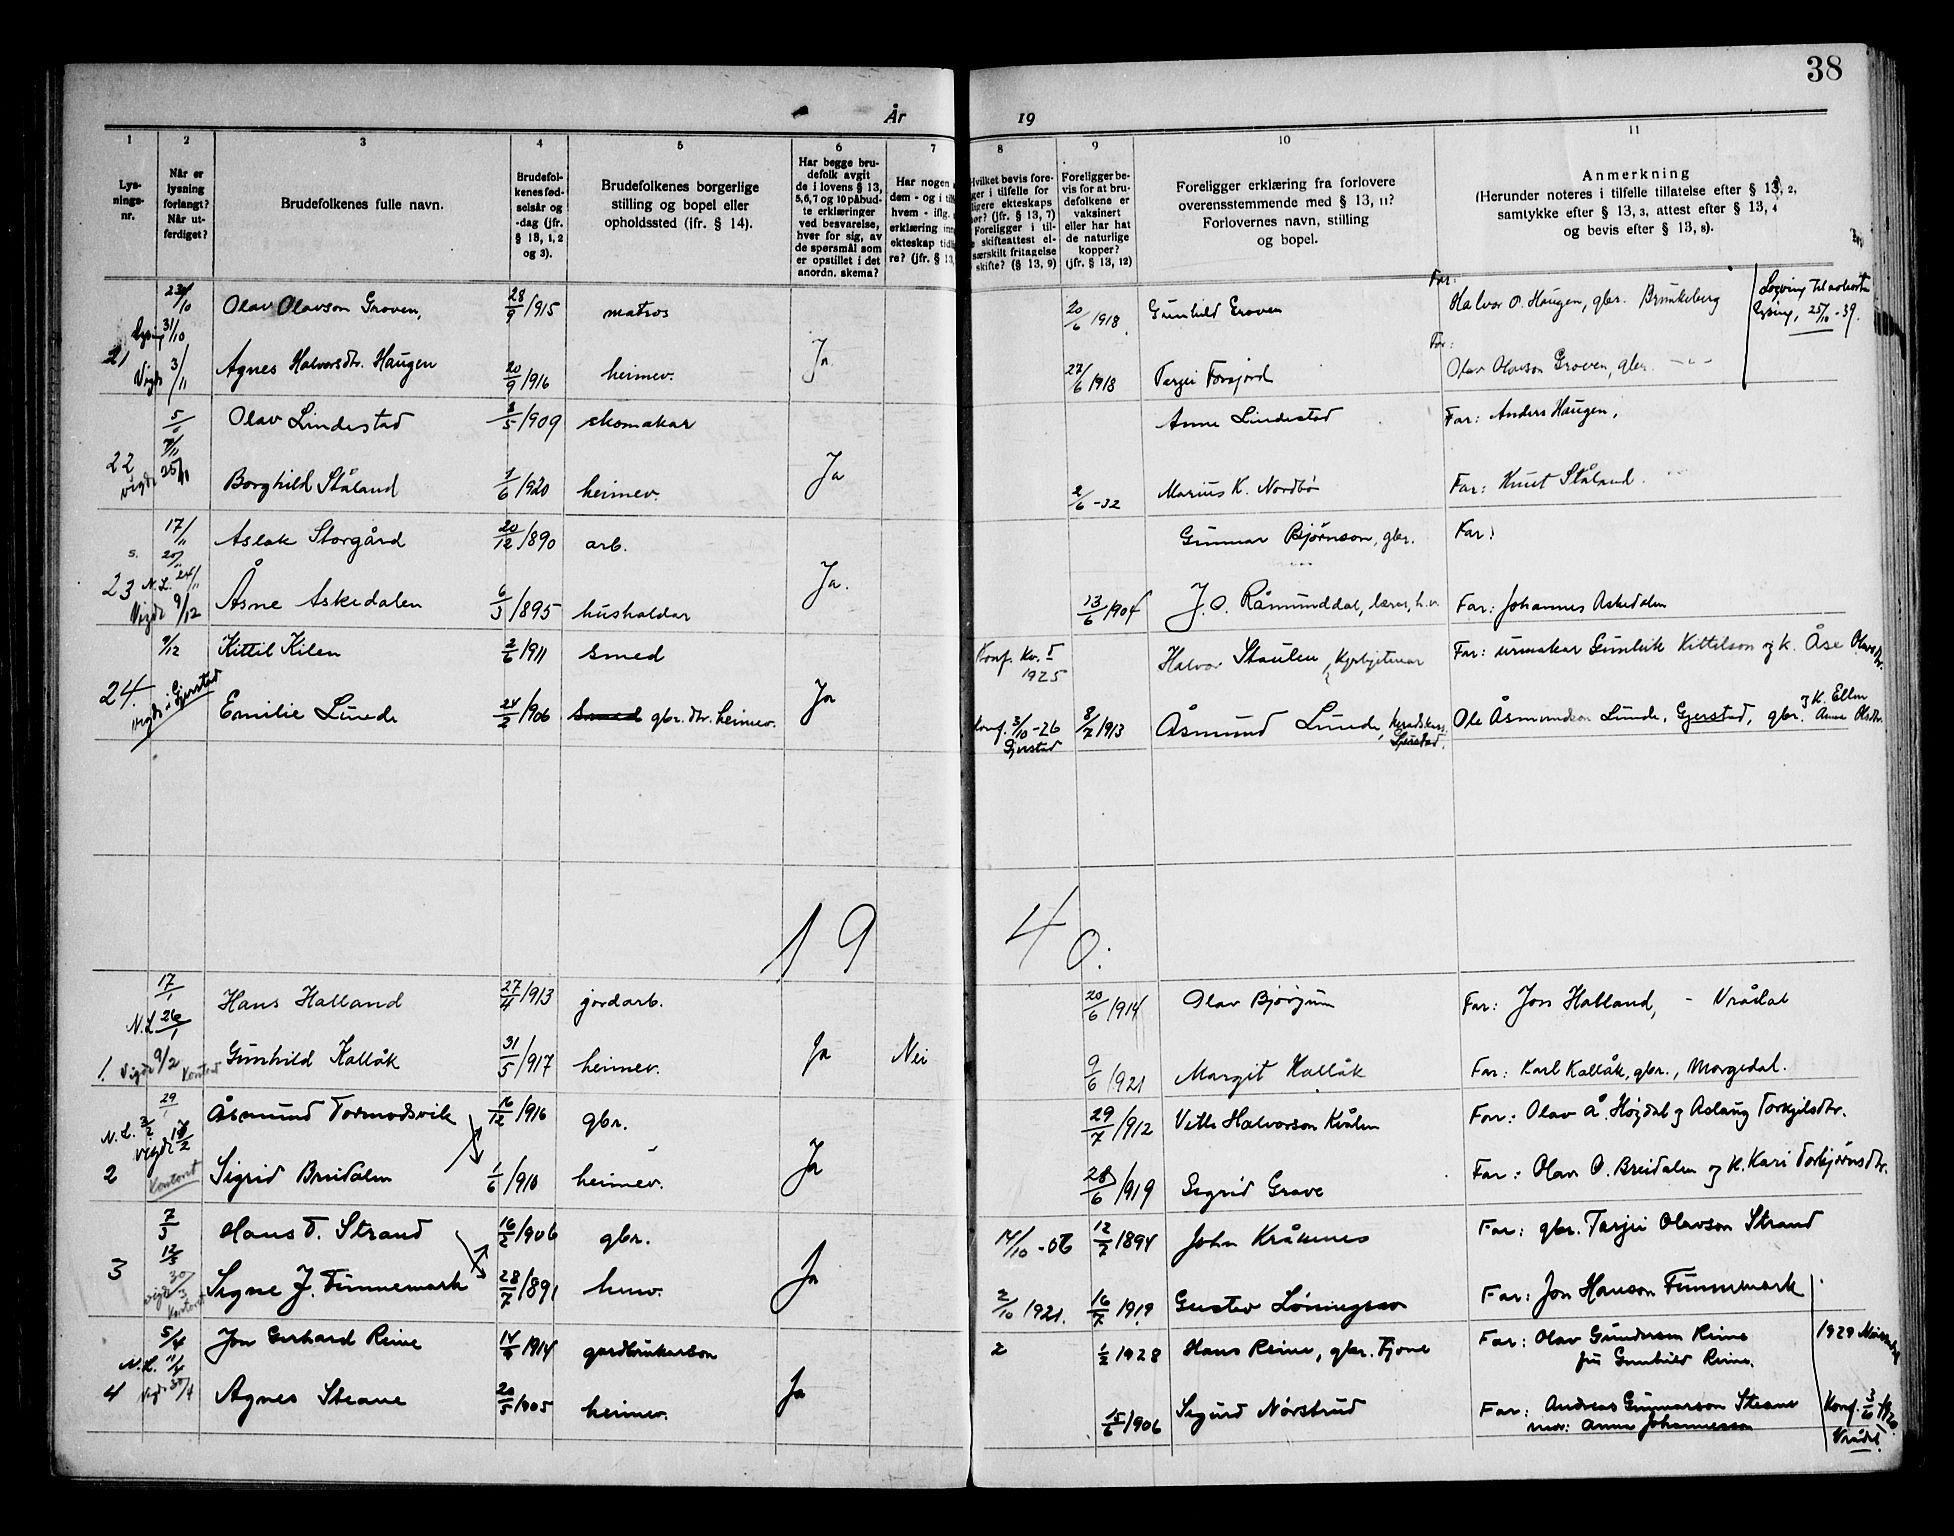 38
År 19
1
Lys-
nings-
nr.
2
Når er
lysning
forlangt?
Når ut-
ferdiget?
3
Brudefolkenes fulle navn.
4
Brudefol-
kenes fød-
selsår og
-dag (jfr.
§ 13, 1, 2
og 3).
5
Brudefolkenes borgerlige
stilling og bopel eller
opholdssted (ifr. § 14).
6
Har begge bru-
defolk avgit
de i lovens § 13,
5, 6, 7 og 10 påbud-
te erklæringer
ved besvarelse,
hver for sig, av
de spørsmål som
er opstillet i det
anordn. skema?
7
Har nogen
dem - og i til
hvem - iflg.
erklæring inn
ekteskap tid
re? (jfr. § 13,
8
Hvilket bevis fore-
ger i tilfelle for
ligere ekteskaps
hør? (jfr. § 13, 7)
Foreligger i til-
e skifteattest el-
særskilt fritagelse
skifte? (§ 13, 9)
9
Foreligger be-
vis for at bru-
defolkene er
vaksinert
eller har hat
de naturlige
kopper?
(jfr. § 13, 12)
10
Foreligger erklæring fra forlovere
overensstemmende med § 13, 11?
Forlovernes navn, stilling
og bopel.
11
Anmerkning
(Herunder noteres i tilfelle tillatelse efter § 13, 2,
samtykke efter § 13, 3, attest efter § 13, 4
og bevis efter § 13, 8).
23/10 Olav Olavson Groven, 28/9 1915 matros 20/6 1918 Gunhild Groven Far: Halvor O. Haugen, gbr. Brunkeberg
Lysing 25/10 -39.
21 Lysing 31/10 Vigde 3/11 Agnes Halvorsdtr. Haugen 20/9 1916 heimev. Ja 22/6 1918 Tarjei Forsjord Far: Olav Olavson Groven, gbr. -"-
Olav Lindestad 3/5 1909 skomakar Anne Lindestad Far: Anders Haugen,
22 vigde 25/11 Borghild Ståland 1/6 1920 heimev. Ja 2/6 -32 Marius K. Nordbø Far: Knut Ståland.
17/11 Aslak Storgård 20/12 1890 arb. Gunnar Bjørnson, gbr. Far:
23 N.L. 24/11 Vigde 9/12 Åsne Askedalen 6/3 1895 husholdar Ja. 13/6 1904 J. O. Råmunddal, lærar, h.v. Far: Johannes Askedalen
9/12 Kittil Kilen 2/6 1911 smed Konf. Kv. I 1925 Halvor Staulen, Far: urmakar Gunleik Kittilson og k. Åse Olavsdtr.
24. vigde i Gjerstad Emilie Lunde 24/2 1906 Smed gbr. dtr. heimev. Ja Konf. 3/10 -26 Gjerstad 8/7 1913 Åsmund Lunde, Gjerstad. Ole Åsmundson Lunde, Gjerstad, gbr. og K. Ellen Anne Olsdtr.
19 40.
17/1 Hans Halland 27/4 1913 jordarb. 20/6 1914 Olav Bjørjum Far: Jon Halland, - Vrådal
N.L. 26/1
1. Vigde 9/2 Kontoret Gunhild Kallåk 31/5 1917 heimev. Ja Nei 9/6 1921 Margit Kallåk Far: Karl Kallåk, gbr., Morgedal.
29/1 Åsmund Tormodsvik 16/12 1916 gbr. 29/7 1912 Vetle Halvorson Kvålen Far: Olav Å. Høgdal og Aslaug Torkjilsdtr.
N.L. 3/2
2 Kontoret Sigrid Breidalen 1/6 1910 heimev. Ja 28/6 1919 Sigrid Grave Far: Olav O. Breidalen og K. Kari Torbjørnsdtr.
7/3 Hans T. Strand 16/2 1906 gbr. 14/10 -06 12/7 1894 John Kråkenes Far: gbr. Tarjei Olavson Strand
12/3
3 vigde 30/3 Kontoret Signe J. Finnemark 28/7 1891 Ja 2/10 1921. 16/7 1919 Gustav Lønningson Far: Jon Hanson Finnemark
5/4 Jon Gerhard Reine 14/9 1914 gardbrukarson 2 1/2 1928 Hans Reine, gbr. Fjone Far: Olav Gunderson Reine
Gunhild Reine. 1929
N.L. 11/4
4 Vigde 30/4 Agnes Steane 20/5 1905 heimev. Ja 15/6 1906 Sigurd Nørstrud Far: Andreas Gunnarson Steane
mor: Anna Johannesson Konf. 3/6 1920 Vrådal